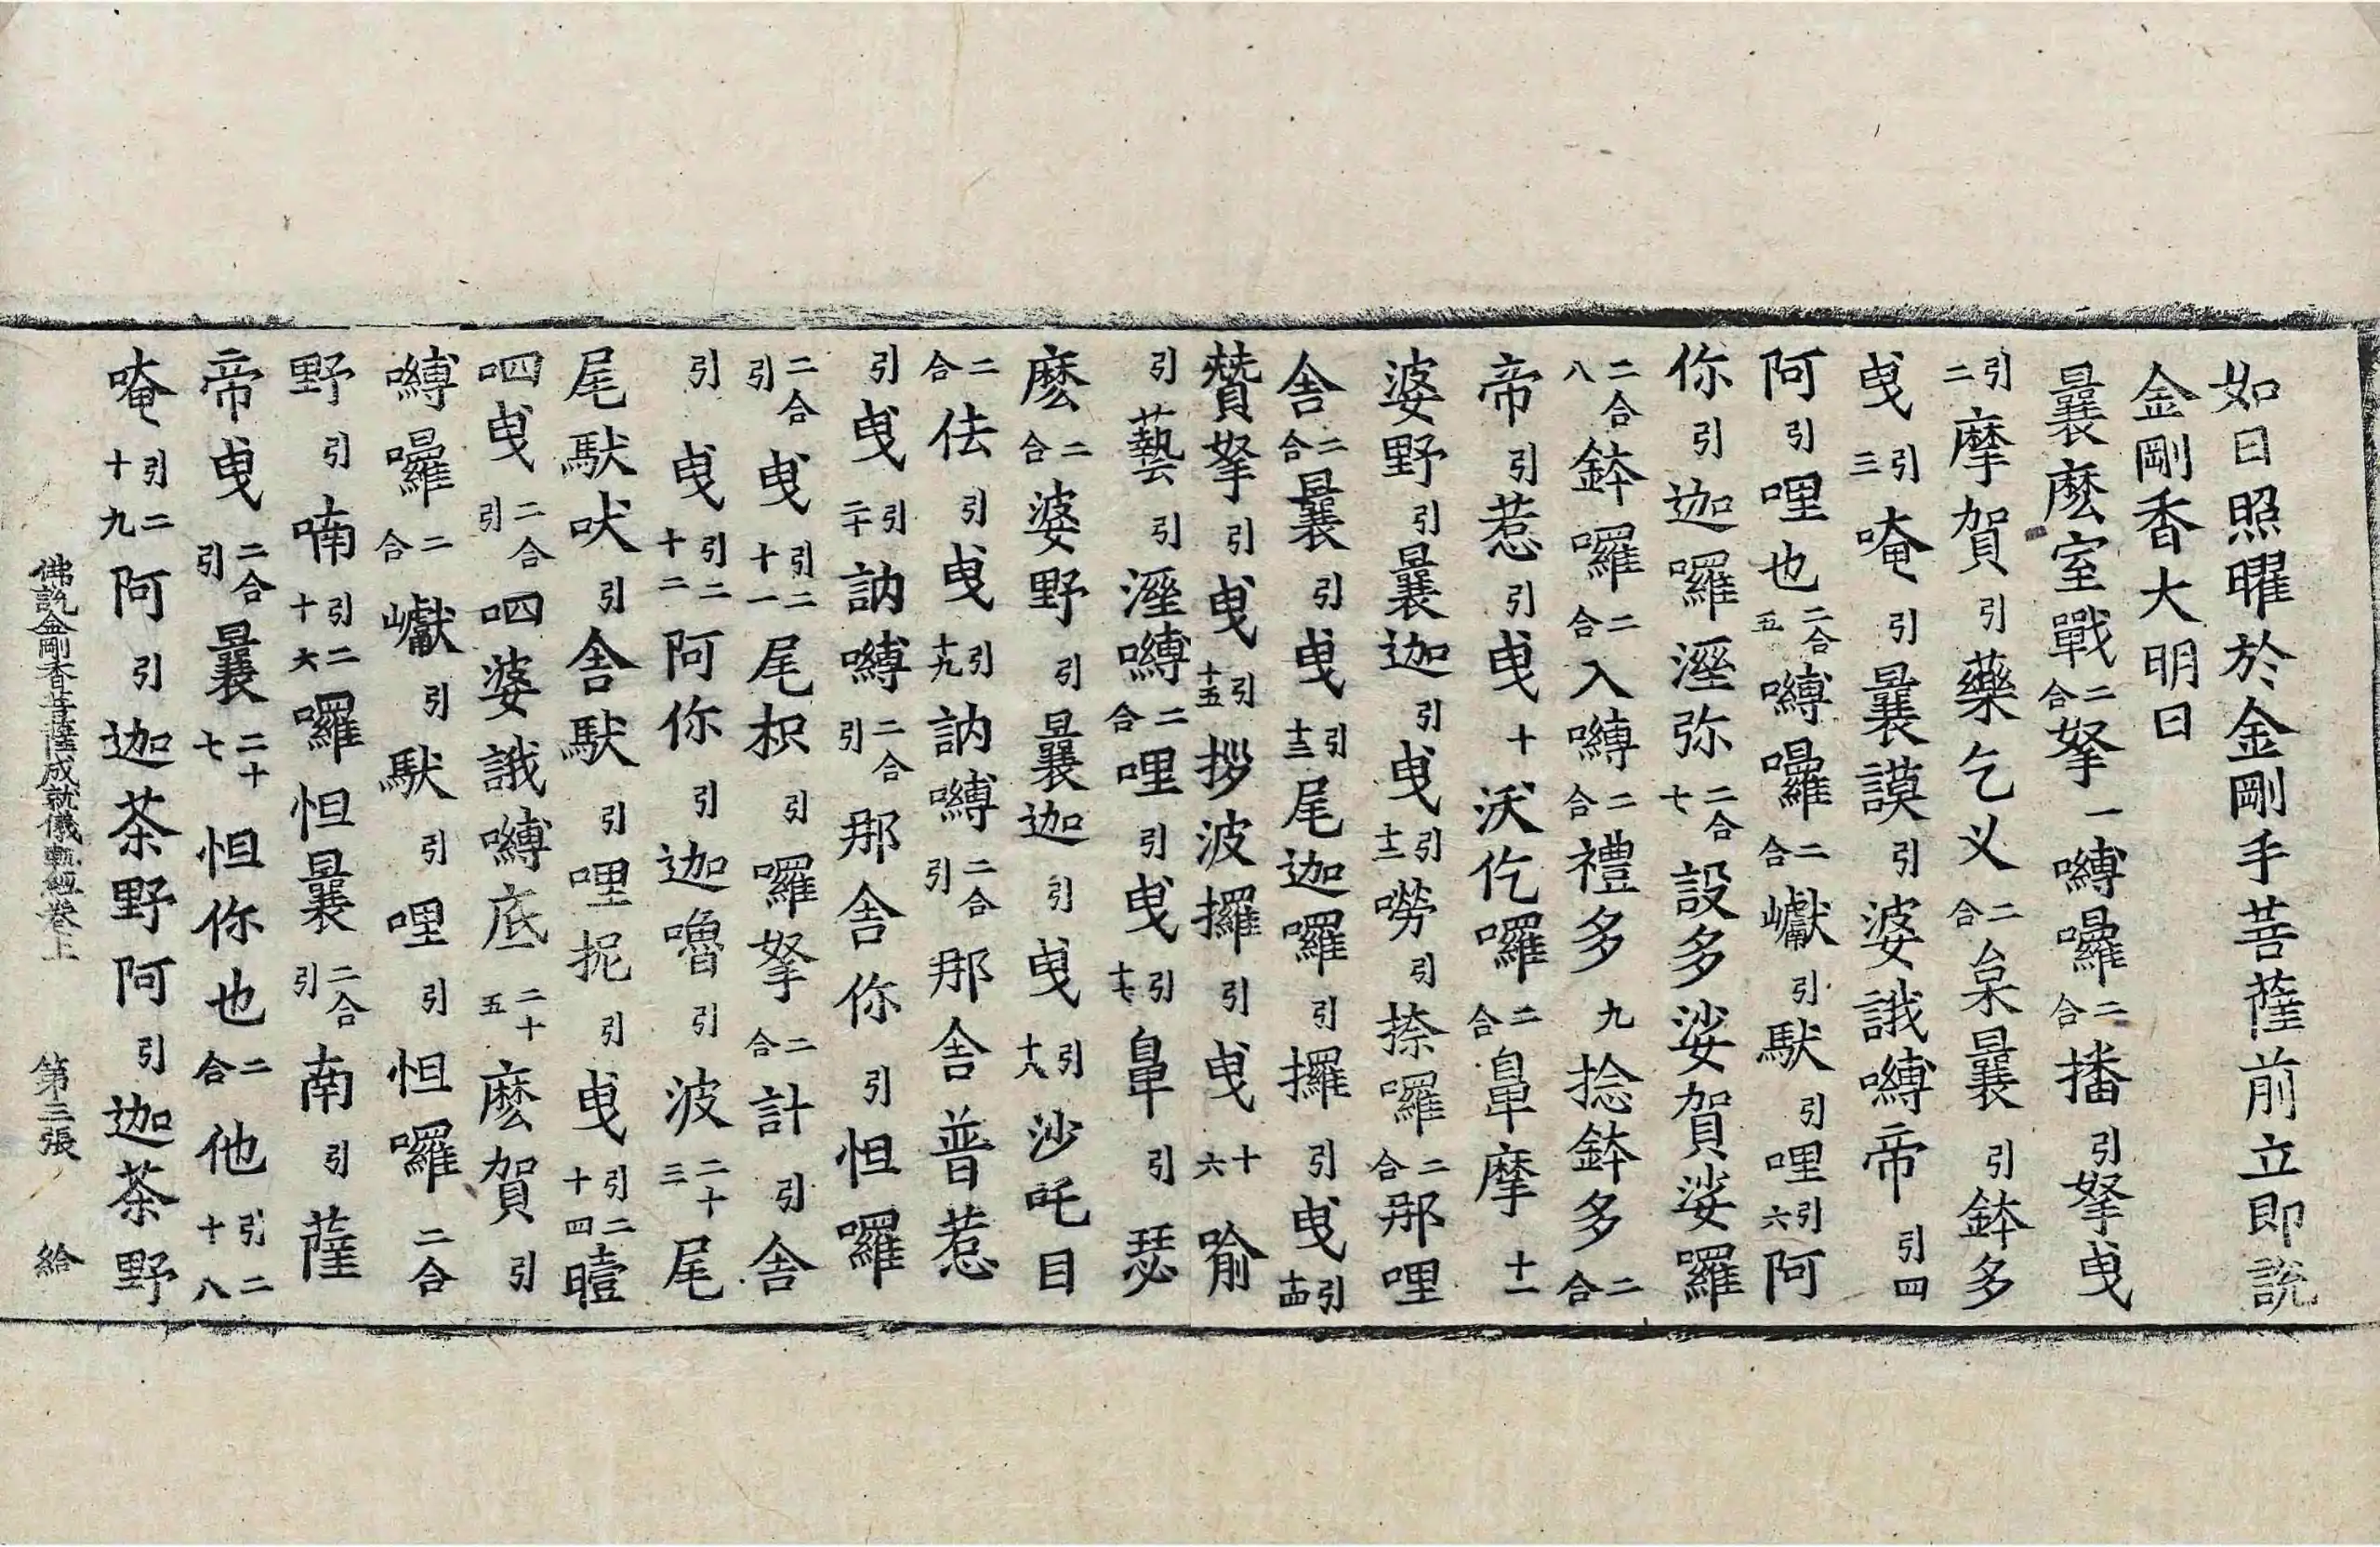 如日照曜於金剛手菩薩前立即說
金剛香大明曰
曩麽室戰二合拏一嚩囉二合播引拏曳
引二摩賀引藥乞乂二合枲曩引鉢多
曳引三唵引曩謨引婆誐嚩帝引四
阿引哩也二合五嚩囉二合巘引馱引哩引六阿
你引迦囉溼弥二合七設多娑賀娑囉
二合八鉢囉二合入嚩二合禮多九捻鉢多二合
帝引惹引曳十沃仡囉二合鼻摩十一
婆野引曩迦引曳引十二嘮引捺囉二合那哩
舍二合曩引曳引十三尾迦囉引攞引曳引十四
贊拏引曳引十五拶波攞引曳十六喻
引藝引溼嚩二合哩引曳引十七鼻引瑟
麽二合婆野引曩迦引曳引十八沙吒目
二合佉引曳引十九訥嚩二合引那舍普惹
引曳引二十訥嚩二合引那舍你引怛囉
二合引曳引二十一尾枳引囉拏二合計引舍
引曳引二十二阿你引迦嚕引波二十三尾
尾馱吠引舍馱引哩抳引曳引二十四曀
呬曳二合引呬婆誐嚩底二十五麽賀引
嚩囉二合巘引馱引哩引怛囉二合
野引喃引二十六囉怛曩二合引南引薩
帝曳二合引曩二十七怛你也二合他引二十八
唵引二十九阿引迦茶野阿引迦茶野
佛說金剛香菩薩成就儀軌經卷上 第三張 給